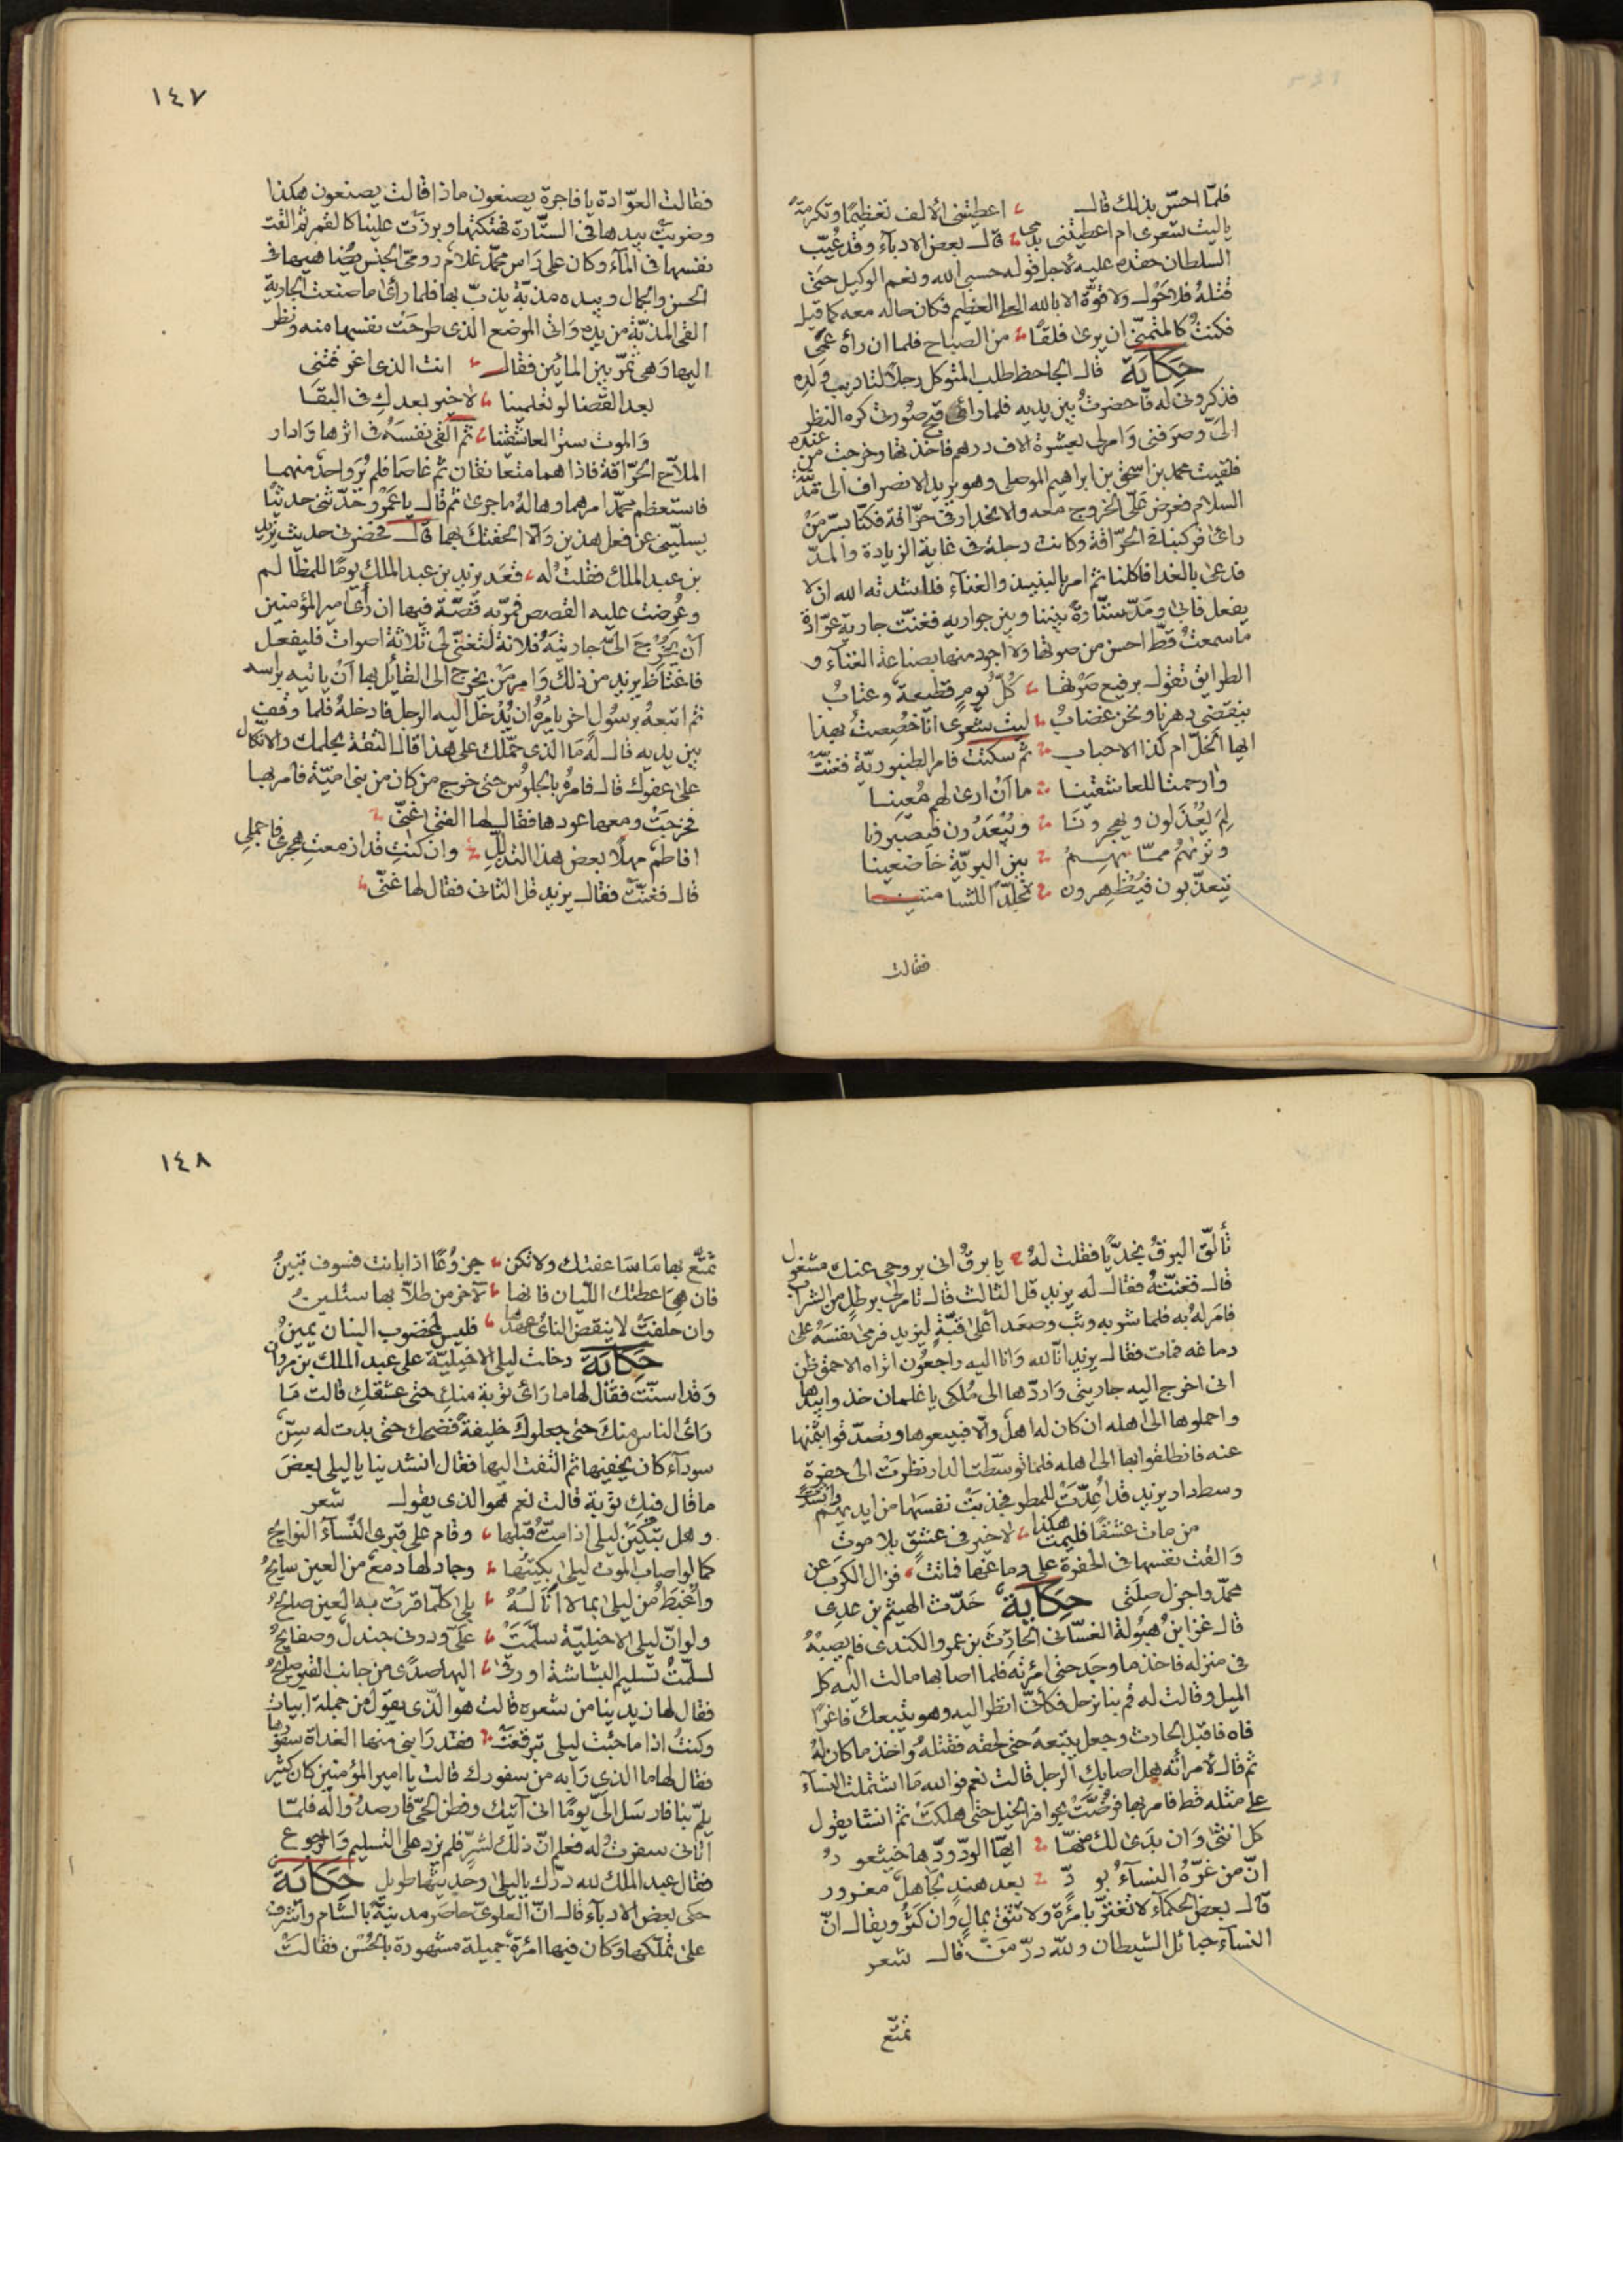 فلمّا احسّ بذلك قال ؞ اعطيتنى الالف تعظيمًا وتكرمةً
ياليت شعرى ام اعطيتنى بدمى ؞ قال بعض الادبآء وقد عُيّب
السلطان حقده عليه لاجل قوله حسبى الله ونعم الوكيل حتى
قتلهُ فلا حول ولا قوّة الا بالله العلى العظيم فكان حاله معه كما قيل
فكنتُ كالمتمنّى ان يرى فلقًا ؞ من الصباح فلما ان رأه عمى
حكاية قال الجاحظ طلب المتوكل رجلًا لتاديب ولده
فذكرونى له فاحضرتُ بين يديه فلما راى قبح صورتى كره النظر
الىّ وصرفنى وامر لى بعشرة الاف درهم فاخذتها وخرجت من عنده
فلقيت محمد بن اسحق بن ابراهيم الموصلى وهو يريد الانصراف الى مدينة
السلام فعرض علىّ الخروج معه والانحدار فى حرّاقة فكنّا بسرّمن
راى فركبنا فى الحرّاقة وكانت دجلة فى غاية الزيادة والمدّ
فدعى بالغدا فاكلنا ثم امر بالنبيذ والغنآء فناشدته الله ان لا
يفعل فابى ومدّ ستارةً بيننا وبين جواريه فغنّت جارية عوّادة
ما سمعتُ قطّ احسن من صوتها ولا اجود منها بصناعة الغنآء و
الطرايق تقول برفيع صوتها ؞ كلّ يومٍ قطيعة وعتابُ
ينقضى دهرنا ونحن غضابُ ؞ ليت شعرى انا خُصصتُ بهذا
ايها الخلّ ام كذا الاحباب ؞ ثم سكتت فامر الطنبوريّة فغنّت
وارحمتا للعاشقينا ؞ ما ان ارى لهم مُعينا
لِمَ يُعْذَلون ويهجرونَا ؞ ويُبْعَدُون فيصبرونا
وتراهُم ممّا بهم ؞ بين البريّة خاضعينا
يتعذّبون فيُظهرون ؞ تجلّدًا للشامتينا
فقالت
١٤٧
فقالت العوّادة يا فاجرة يصنعون ماذا قالت يصنعون هكذا
وضربتْ بيدها فى الستّارة فهتكتها وبرزت علينا كالقمر ثم القت
نفسها فى المآء وكان على راس محمّد غلام رومى الجنس يضاهيها فى
الحسن والجمال وبيده مذبّة يذبّ بها فلما راى ما صنعت الجارية
القى المذبّة من يده واتى الموضع الذى طرحَتْ نفسها منه ونظر
اليها وهى تمرّ بين المائين فقال ؞ انت الذى اغرقتنى
بعد القضا لو تعلمينا ؞ لا خير بعدكِ فى البقا
والموت ستر العاشقينا ؞ ثم القى نفسَهُ فى اثرها وادار
الملاّح الحرّاقة فاذا هما متعانقان ثم غاصا فلم يُرَ واحد منهما
فاستعظم محمّد امرهما وهالهُ ماجرى ثم قال يا عَمْرو حدّثنى حديثًا
يسلّينى عن فعل هذين وَالّا الحقتك بهما قال فحضرنى حديث يزيد
بن عبد الملك فقلتُ له ؞ قَعَد يزيد بن عبد الملك يومًا للمظالم
وعُرضت عليه القصص فمرّبه قصّة فيها ان رأى امير المؤمنين
ان يُخرجَ الىّ جاريتَهُ فلانة لتغنّى لى ثلاثة اصوات فليفعل
فاغتاظ يزيد من ذلك وامر من يخرج الى القائل بها ان ياتيه براسه
ثم اتبعهُ برسُول اخر يامرُهُ ان يُدخل اليه الرجل فادخلهُ فلما وقف
بين يديه قال لهُ ما الذى حمّلك على هذا قال الثقة بحلمك والاتكال
على عفوك قال فامرهُ بالجلوس حتى خرج من كان من بنى اميّة فامر بها
فخرجَتْ ومعها عودها فقال لها الفتى غنّى ؞
افاطم مهلًا بعض هذا التدلّلِ ؞ وان كنتِ قد ازمعتِ هجرى فاجملى
قال فغنّت فقال يزيد قل الثانى فقال لها غنّى ؞
تألّق البرقُ نجديًّا فقلت لهُ ؞ يا برقُ انى بروحى عنك مشغول
قال فغنّتهُ فقال له يزيد قل الثالث قال تامر لى برطلٍ من الشراب
فامر لهُ به فلما شربه وثب وصعد اعلى قبّةٍ ليزيد فرمى نفسَهُ على
دماغه فمات فقال يزيد انّا لله وانّا اليه راجعُون اتراه الاحمق ظن
انى اخرج اليه جاريتى واردّها الى مُلكى يا غلمان خذوا بيدها
واحملوها الى اهله ان كان له اهل والّا فبيعوها وتصدّقوا بثمنها
عنه فانطلقوا بها الى اهله فلما توسّطت الدار نظرَتْ الى حفرة
وسط دار يزيد قد اُعِدّتْ للمطر فجذبَتْ نفسَها من ايديهم وانشدَتْ
من مات عشقًا فليمت هكذا ؞ لا خير فى عشقٍ بلا موتِ
والقتْ نفسها فى الحفرة على دماغها فماتتْ ؞ فزال الكرب عن
محمّد واجزل صلتى حكاية حدّث الهيثم بن عدى
قال غزا ابن هبُولة الغسّانى الحارث بن عمرو الكندى فلم يصبْهُ
فى منزله فاخذ ما وجد حتى امرئته فلما اصابها مالت اليه كل
الميل وقالت له قم بنا نرحل فكأنّى انظر اليه وهو يتبعك فاغرًا
فاه فاقبل الحارث وجعل يتبعهُ حتى لحقه فقتلهُ واخذ ما كان لهُ
ثم قال لامرأته هل اصابكِ الرجل قالت نعم فوالله ما اشتملت النسآء
على مثله قط فامر بها فرُضّتْ بحوافر الخيل حتى هلكتْ ثم انشا يقول
كل انثى وان بدى لك منها ؞ ايّها الودّ ودّها خيثعورُ
انّ من غرّهُ النسآءُ بودٍّ ؞ بعد هندٍ لجاهلٌ مغرور
قال بعض الحكمآء لا تغترّ بامرُة ولا تثق بمالٍ وان كثُر ويقال انّ
النسآء حبائل الشيطان ولله درّ منّ قال شعر
تمتّع
١٤٨
تمتّع بها ما ساعفتك ولا تكن ؞ جزُوعًا اذا بانت فسوف تبينُ
فان هى اعطتك اللّيان فانها ؞ لآخر من طلّابها ستلينُ
وان حلفتْ لا ينقض الناىُ عهدها ؞ فليس لمخضوب البنان يمينُ
حكاية دخلت ليلى الاخيليّة على عبد الملك بن مروان
وقد اسنّت فقال لها ما راى توبة منكِ حتى عشقكِ قالت ما
راى الناس منكَ حتى جعلوك خليفةً فضحك حتى بدت له سِنّ
سودآء كان يخفيها ثم التفت اليها فقال انشدينا يا ليلى بعض
ما قال فيك توبة قالت نعم هو الذى يقول شعر
وهل تبكيَنْ ليلى اذا متُّ قبلها ؞ وقام على قبرى النّسآءُ النوايحُ
كما لو اصاب الموت ليلى بكيتها ؞ وجاد لها دمع من العين سايحُ
واُغْبَطُ من ليلى بما لا انالهُ ؞ بلى كلّما قرّت به العين صالحُ
ولو انّ ليلى الاخيليّة سلّمَتْ ؞ علىّ ودونى جندل وصفايحُ
لسلّمتُ تسليم البشاشة او زقى ؞ اليها صدًى من جانب القبر صايحُ
فقال لها زيدينا من شعره قالت هو الّذى يقول من جملة ابيات
وكنتُ اذا ما جئت ليلى تبرقعت ؞ فقد رابنى منها الغداة سفورها
فقال لها ما الذى رابه من سفورك قالت يا امير المؤمنين كان كثير
يلمّ بنا فارسل الىّ يومًا انى آتيك وفطن الحىّ فارصدُوا له فلمّا
اتانى سفرت له فعلم انّ ذلك لشرٍّ فلم يزد على التسليم والرجوع
فقال عبد الملك لله درّك يا ليلى وحديثها طويل حكاية
حكى بعض الادبآء قال انّ العلوىّ حاصر مدينة بالشام واشرف
على تملّكها وكان فيها امرُة جميلة مشهورة بالحُسْن فقالتْ